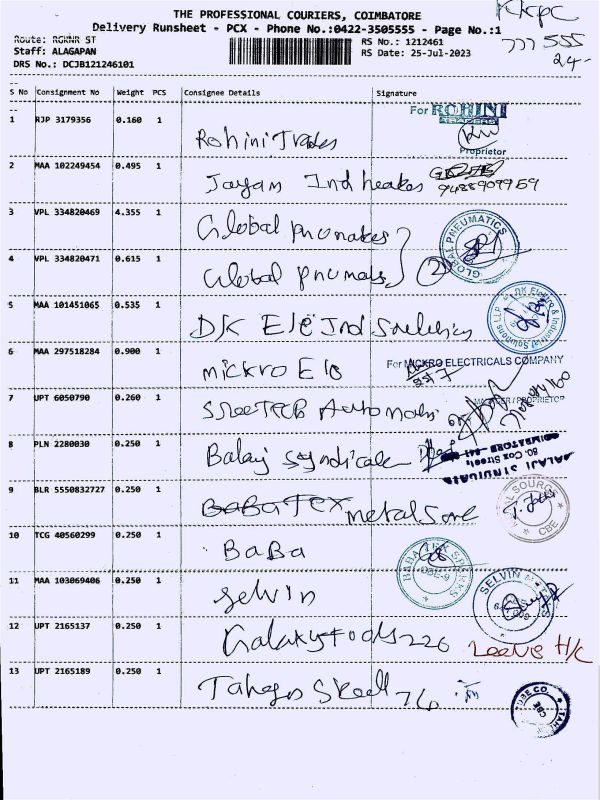 KKPC
THE PROFESSIONAL COURIERS, COIMBATORE
Delivery Runsheet - PCX - Phone No.:0422-3505555 - Page No.:1
777 555
24-
Route: RGKNR ST
RS No.: 1212461
Staff: ALAGAPAN
RS Date: 25-Jul-2023
DRS No.: DCJB121246101
S No Consignment No Weight PCS Consignee Details Signature
1 RJP 3179356 0.160 1 Rohini Trades For ROHINI Proprietor
2 MAA 102249454 0.495 1 Jayam Ind
9488909959
3 VPL 334820469 4.355 1 Global GLOBAL PNEUMATICS
4 VPL 334820471 0.615 1 Global 2
5 MAA 101451065 0.535 1 DK Ele Ind DK Electro & Industrial Solutions LLP
6 MAA 297518284 0.900 1 mickro Ele For MICKRO ELECTRICALS COMPANY
MANAGER / PROPRIETOR
7 UPT 6050790 0.260 1
8 PLN 2280030 0.250 1 Balaji Syndicate BALAJI SYNDICATE
80, Cox Street,
COIMBATORE - 641
9 BLR 5550832727 0.250 1 BaBa Tex metal Sore METAL SOURCE CBE
10 TCG 40560299 0.250 1 BaBa BABA TEX SPARES CBE-9
11 MAA 103069406 0.250 1 Selvin SELVIN
12 UPT 2165137 0.250 1 Galaxy foods 226 Leelvis H/C
13 UPT 2165189 0.250 1 76 TUBE CO. CBE